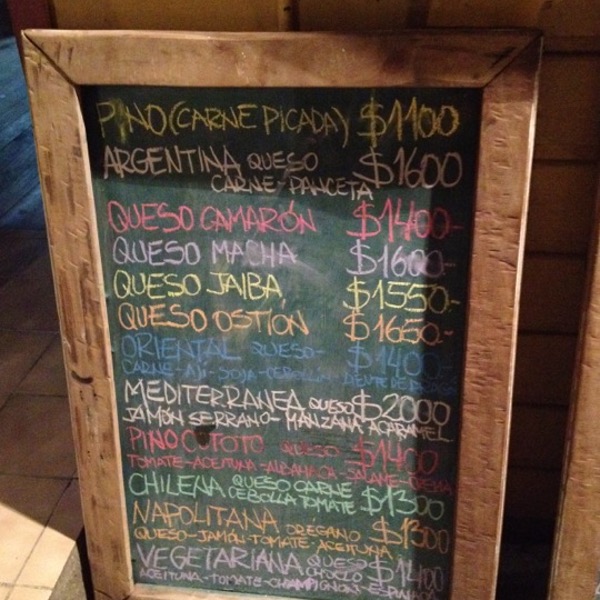 PINO (CARNE PICADA) $1100
ARGENTINA QUESO $1600
CARNE - PANCETA
QUESO CAMARÓN $1400-
QUESO MACHA $1600.-
QUESO JAIBA $1550.-
QUESO OSTION $1650.-
ORIENTAL QUESO- $1400-
CARNE - AJÍ - SOJA - CEBOLLIN DIENTE DE DRAGON
MEDITERRANEA QUESO $2000
JAMÓN SERRANO - MANZANA ACARAMEL
PINOCOTOTO QUESO $1400
TOMATE - ACEITUNA - ALBAHACA
CHILENA QUESO CARNE $1300
CEBOLLA TOMATE
NAPOLITANA OREGANO $1300
QUESO - JAMÓN - TOMATE - ACEITUNA
VEGETARIANA QUESO $1400
CHOCLO
ACEITUNA - TOMATE - CHAMPIGNON - ESPINACA